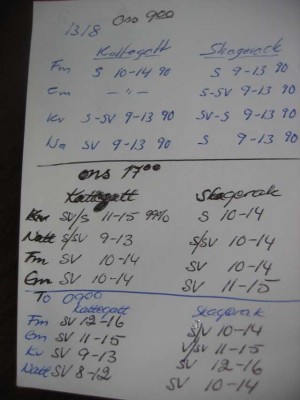 13/8 Ons 900
Kattegatt Skagerack
Fm S 10-14 90 S 9-13 90
Em - " - S-SV 9-13 90
Kv S-SV 9-13 90 SV-S 9-13 90
Na SV 9-13 90 S 9-13 90
Ons 17⁰⁰
Kattegatt Skagerak
Kv SV/S 11-15 S 10-14
Natt S/SV 9-13 S/SV 10-14
Fm SV 10-14 SV 10-14
Em SV 10-14 SV 11-15
To 0900
Kattegatt Skagerak
Fm SV 12-16 S/V 10-14
Em SV 11-15 V/SV 11-15
Kv SV 9-13 SV 12-16
Natt SV 8-12 SV 10-14